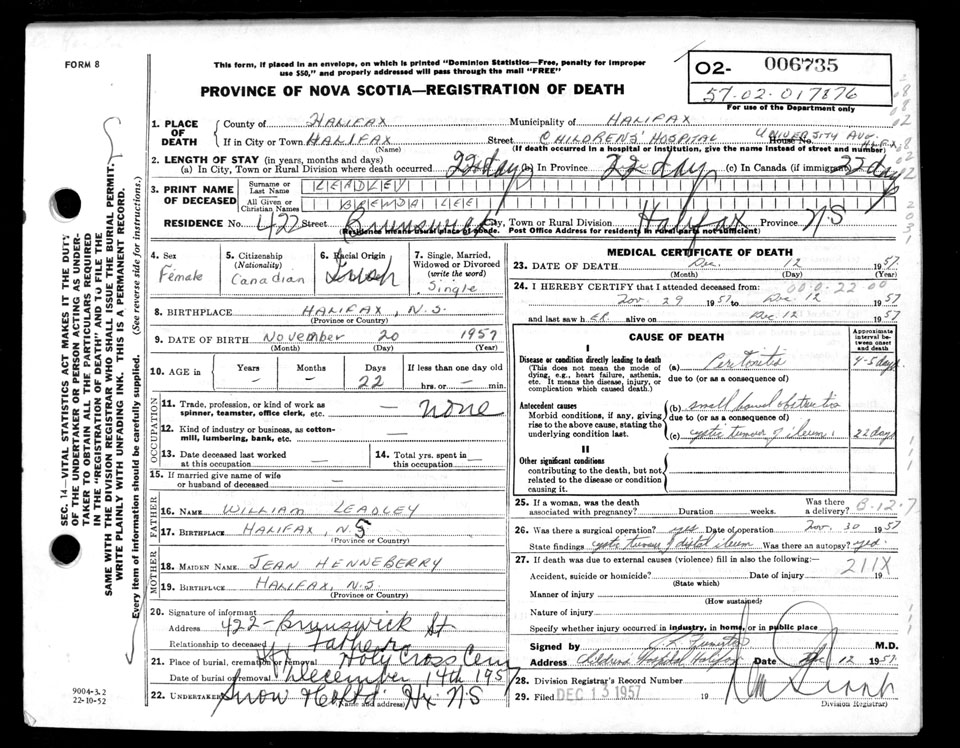 FORM 8
This form, if placed in an envelope, on which is printed "Dominion Statistics—Free, penalty for improper
use $50," and properly addressed will pass through the mail "FREE"
O2- 006735
57-02-017876
For use of the Department only
PROVINCE OF NOVA SCOTIA—REGISTRATION OF DEATH
1. PLACE OF DEATH
County of HALIFAX Municipality of HALIFAX
If in City or Town HALIFAX Street CHILDRENS' HOSPITAL House No. UNIVERSITY AVE.
(Name) (If death occurred in a hospital or institution, give the name instead of street and number)
2. LENGTH OF STAY (in years, months and days)
(a) In City, Town or Rural Division where death occurred 22 day (b) In Province 22 day (c) In Canada (if immigrant) 22 day
3. PRINT NAME OF DECEASED
Surname or Last Name LEADLEY
All Given or Christian Names BRENDA LEE
RESIDENCE No. 422 Street Brunswick City, Town or Rural Division Halifax Province N S
(Residence means usual place of abode. Post Office Address for residents in rural parts not sufficient)
4. Sex Female
5. Citizenship (Nationality) Canadian
6. Racial Origin Irish
7. Single, Married, Widowed or Divorced (write the word) Single
8. BIRTHPLACE HALIFAX, N.S.
(Province or Country)
9. DATE OF BIRTH November 20 1957
(Month) (Day) (Year)
10. AGE in Years — Months — Days 22 If less than one day old hrs. or — min.
OCCUPATION
11. Trade, profession, or kind of work as spinner, teamster, office clerk, etc. — none
12. Kind of industry or business, as cotton-mill, lumbering, bank, etc. —
13. Date deceased last worked at this occupation —
14. Total yrs. spent in this occupation —
15. If married give name of wife or husband of deceased —
FATHER
16. NAME WILLIAM LEADLEY
17. BIRTHPLACE HALIFAX N.S
(Province or Country)
MOTHER
18. MAIDEN NAME JEAN HENNEBERRY
19. BIRTHPLACE HALIFAX, N.S.
(Province or Country)
20. Signature of informant
Address 422- Brunswick St
Relationship to deceased Father
21. Place of burial, cremation or removal Holy Cross Cem
Date of burial or removal December 14th 1957
22. UNDERTAKER Snow Hx NS
(Name and address)
9004-3.2
22-10-52
MEDICAL CERTIFICATE OF DEATH
23. DATE OF DEATH Dec. 12 1957
(Month) (Day) (Year)
24. I HEREBY CERTIFY that I attended deceased from:
00-0-22 00
Nov. 29 1957 to Dec 12 1957
and last saw her alive on Dec. 12 1957
CAUSE OF DEATH
Approximate interval between onset and death
I
Disease or condition directly leading to death
(This does not mean the mode of dying, e.g., heart failure, asthenia, etc. It means the disease, injury, or complication which caused death.)
(a) Peritonitis 4-5 days
due to (or as a consequence of)
Antecedent causes
Morbid conditions, if any, giving rise to the above cause, stating the underlying condition last.
(b) small bowel obstruction
due to (or as a consequence of)
(c) cystic tumour of ileum. 22 days
II
Other significant conditions
contributing to the death, but not related to the disease or condition causing it.
25. If a woman, was the death associated with pregnancy? Duration weeks. Was there a delivery?
B-12-7
26. Was there a surgical operation? yes Date of operation Nov. 30 1957
State findings cystic tumour of distal ileum Was there an autopsy? yes.
27. If death was due to external causes (violence) fill in also the following:
211X
Accident, suicide or homicide? Date of injury 19
(State which)
Manner of injury
(How sustained)
Nature of injury
Specify whether injury occurred in industry, in home, or in public place
Signed by M.D.
Address Childrens Hospital Halifax Date Dec 12 1957
28. Division Registrar's Record Number
29. Filed DEC 13 1957 19
Division Registrar
SEC. 14—VITAL STATISTICS ACT MAKES IT THE DUTY
OF THE UNDERTAKER OR PERSON ACTING AS UNDER-
TAKER TO OBTAIN ALL THE PARTICULARS REQUIRED
IN THE "REGISTRATION OF DEATH" AND TO FILE THE
SAME WITH THE DIVISION REGISTRAR WHO SHALL ISSUE THE BURIAL PERMIT.
WRITE PLAINLY WITH UNFADING INK. THIS IS A PERMANENT RECORD.
Every item of information should be carefully supplied. (See reverse side for instructions.)